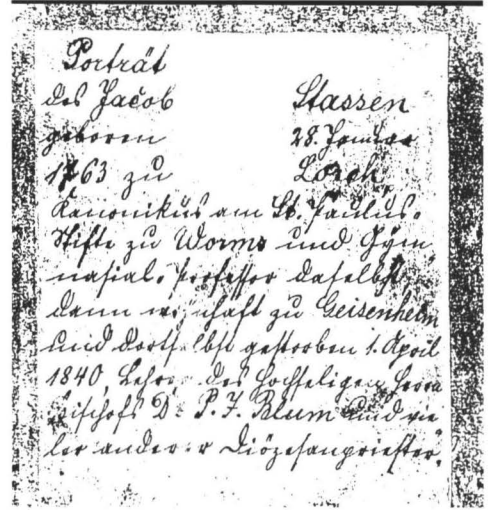 Porträt
des Jacob Stassen
geboren 28. Januar
1763 zu Lorch
Kanonikus am St. Paulus-
Stifte zu Worms und Gym
nasial-Professor daselbst,
dann wohnhaft zu Geisenheim
und dortselbst gestorben 1. April
1840, Lehrer des hochseligen Herrn
Bischofs Dr. P. J. Blum und vie
ler anderer Diözesanpriester.